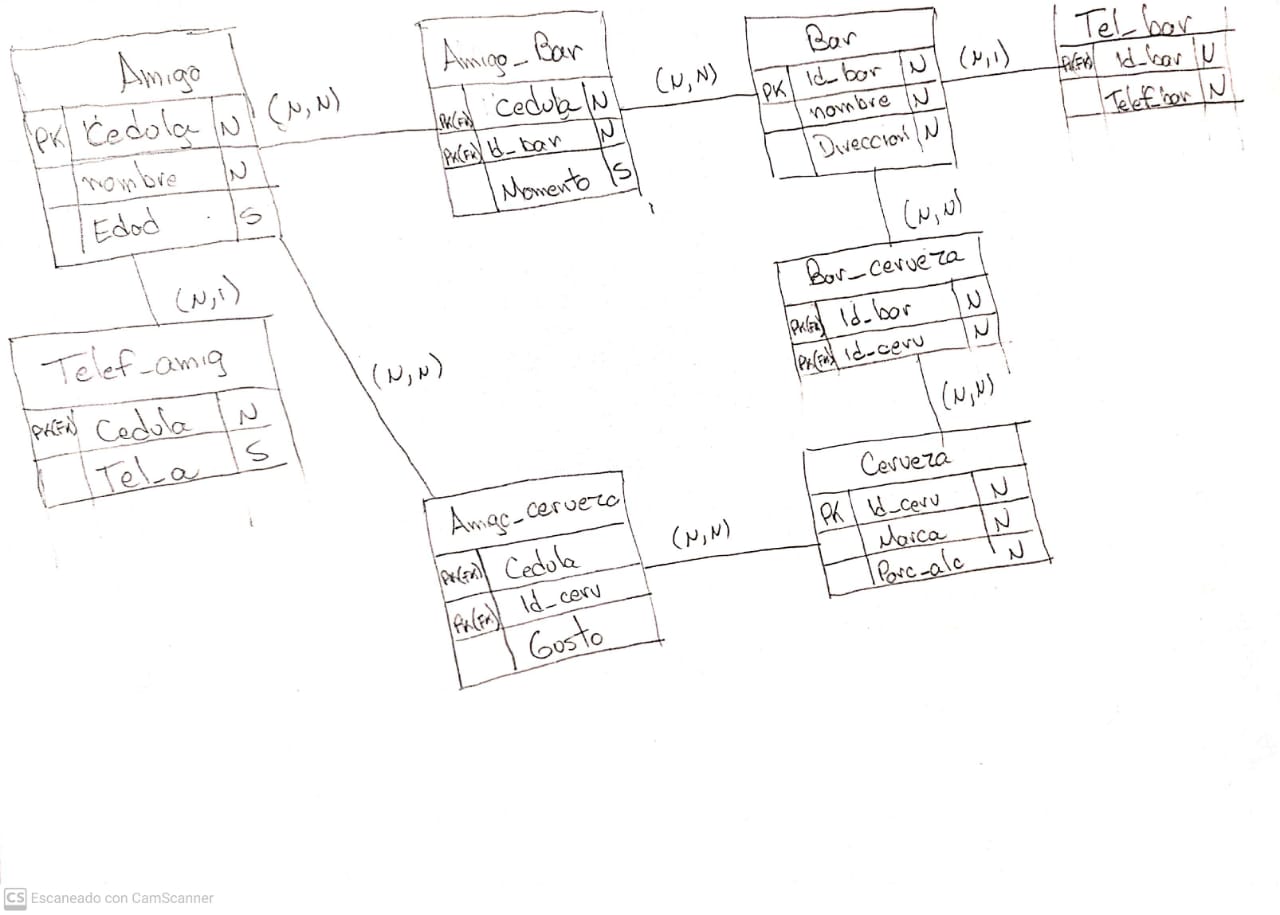 Amigo
PK Cedula N
nombre N
Edad S
(N,N)
Amigo_Bar
PK(FK) Cedula N
PK(FK) Id_bar N
Momento S
(N,N)
Bar
PK Id_bar N
nombre N
Direccion N
(N,1)
Tel_bar
PK(FK) Id_bar N
Telef_bar N
(N,1)
Telef_amig
PK(FK) Cedula N
Tel_a S
(N,N)
(N,N)
Bar_cerveza
PK(FK) Id_bar N
PK(FK) Id_cerv N
(N,N)
Amigo_cerveza
PK(FK) Cedula
PK(FK) Id_cerv
Gusto
(N,N)
Cerveza
PK Id_cerv N
Marca N
Porc_alc N
CS Escaneado con CamScanner